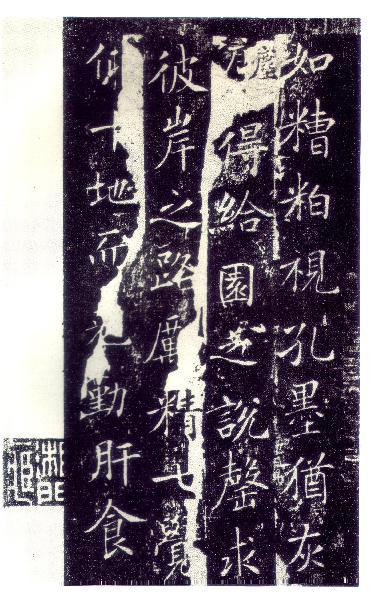 如糟粕視孔墨猶灰
塵方得給園之說罄求
彼岸之路厲精七覺
仰十地而克勤肝食